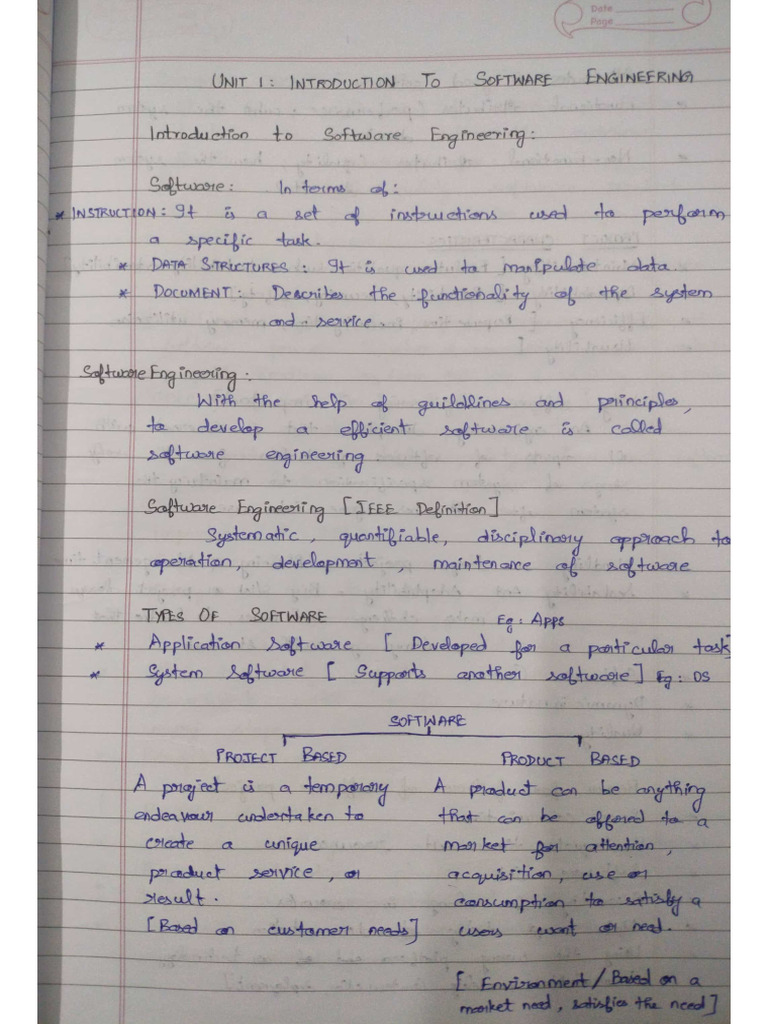 Date
Page
UNIT 1: INTRODUCTION TO SOFTWARE ENGINEERING
Introduction to Software Engineering:
Software: In terms of:
* INSTRUCTION: It is a set of instructions used to perform
a specific task.
* DATA STRUCTURES: It is used to manipulate data
* DOCUMENT: Describes the functionality of the system
and service.
Software Engineering:
With the help of guildlines and principles,
to develop a efficient software is called
software engineering
Software Engineering [IEEE Definition]
Systematic, quantifiable, disciplinary approach to
operation, development, maintenance of software
TYPES OF SOFTWARE Eg: Apps
* Application Software [Developed for a particular task]
* System Software [Supports another software] Eg: OS
SOFTWARE
PROJECT BASED
A project is a temporary
endeavour undertaken to
create a unique
product service, or
result.
[Based on customer needs]
PRODUCT BASED
A product can be anything
that can be offered to a
market for attention,
acquisition, use or
consumption to satisfy a
users want or need.
[Environment/Based on a
market need, satisfies the need]